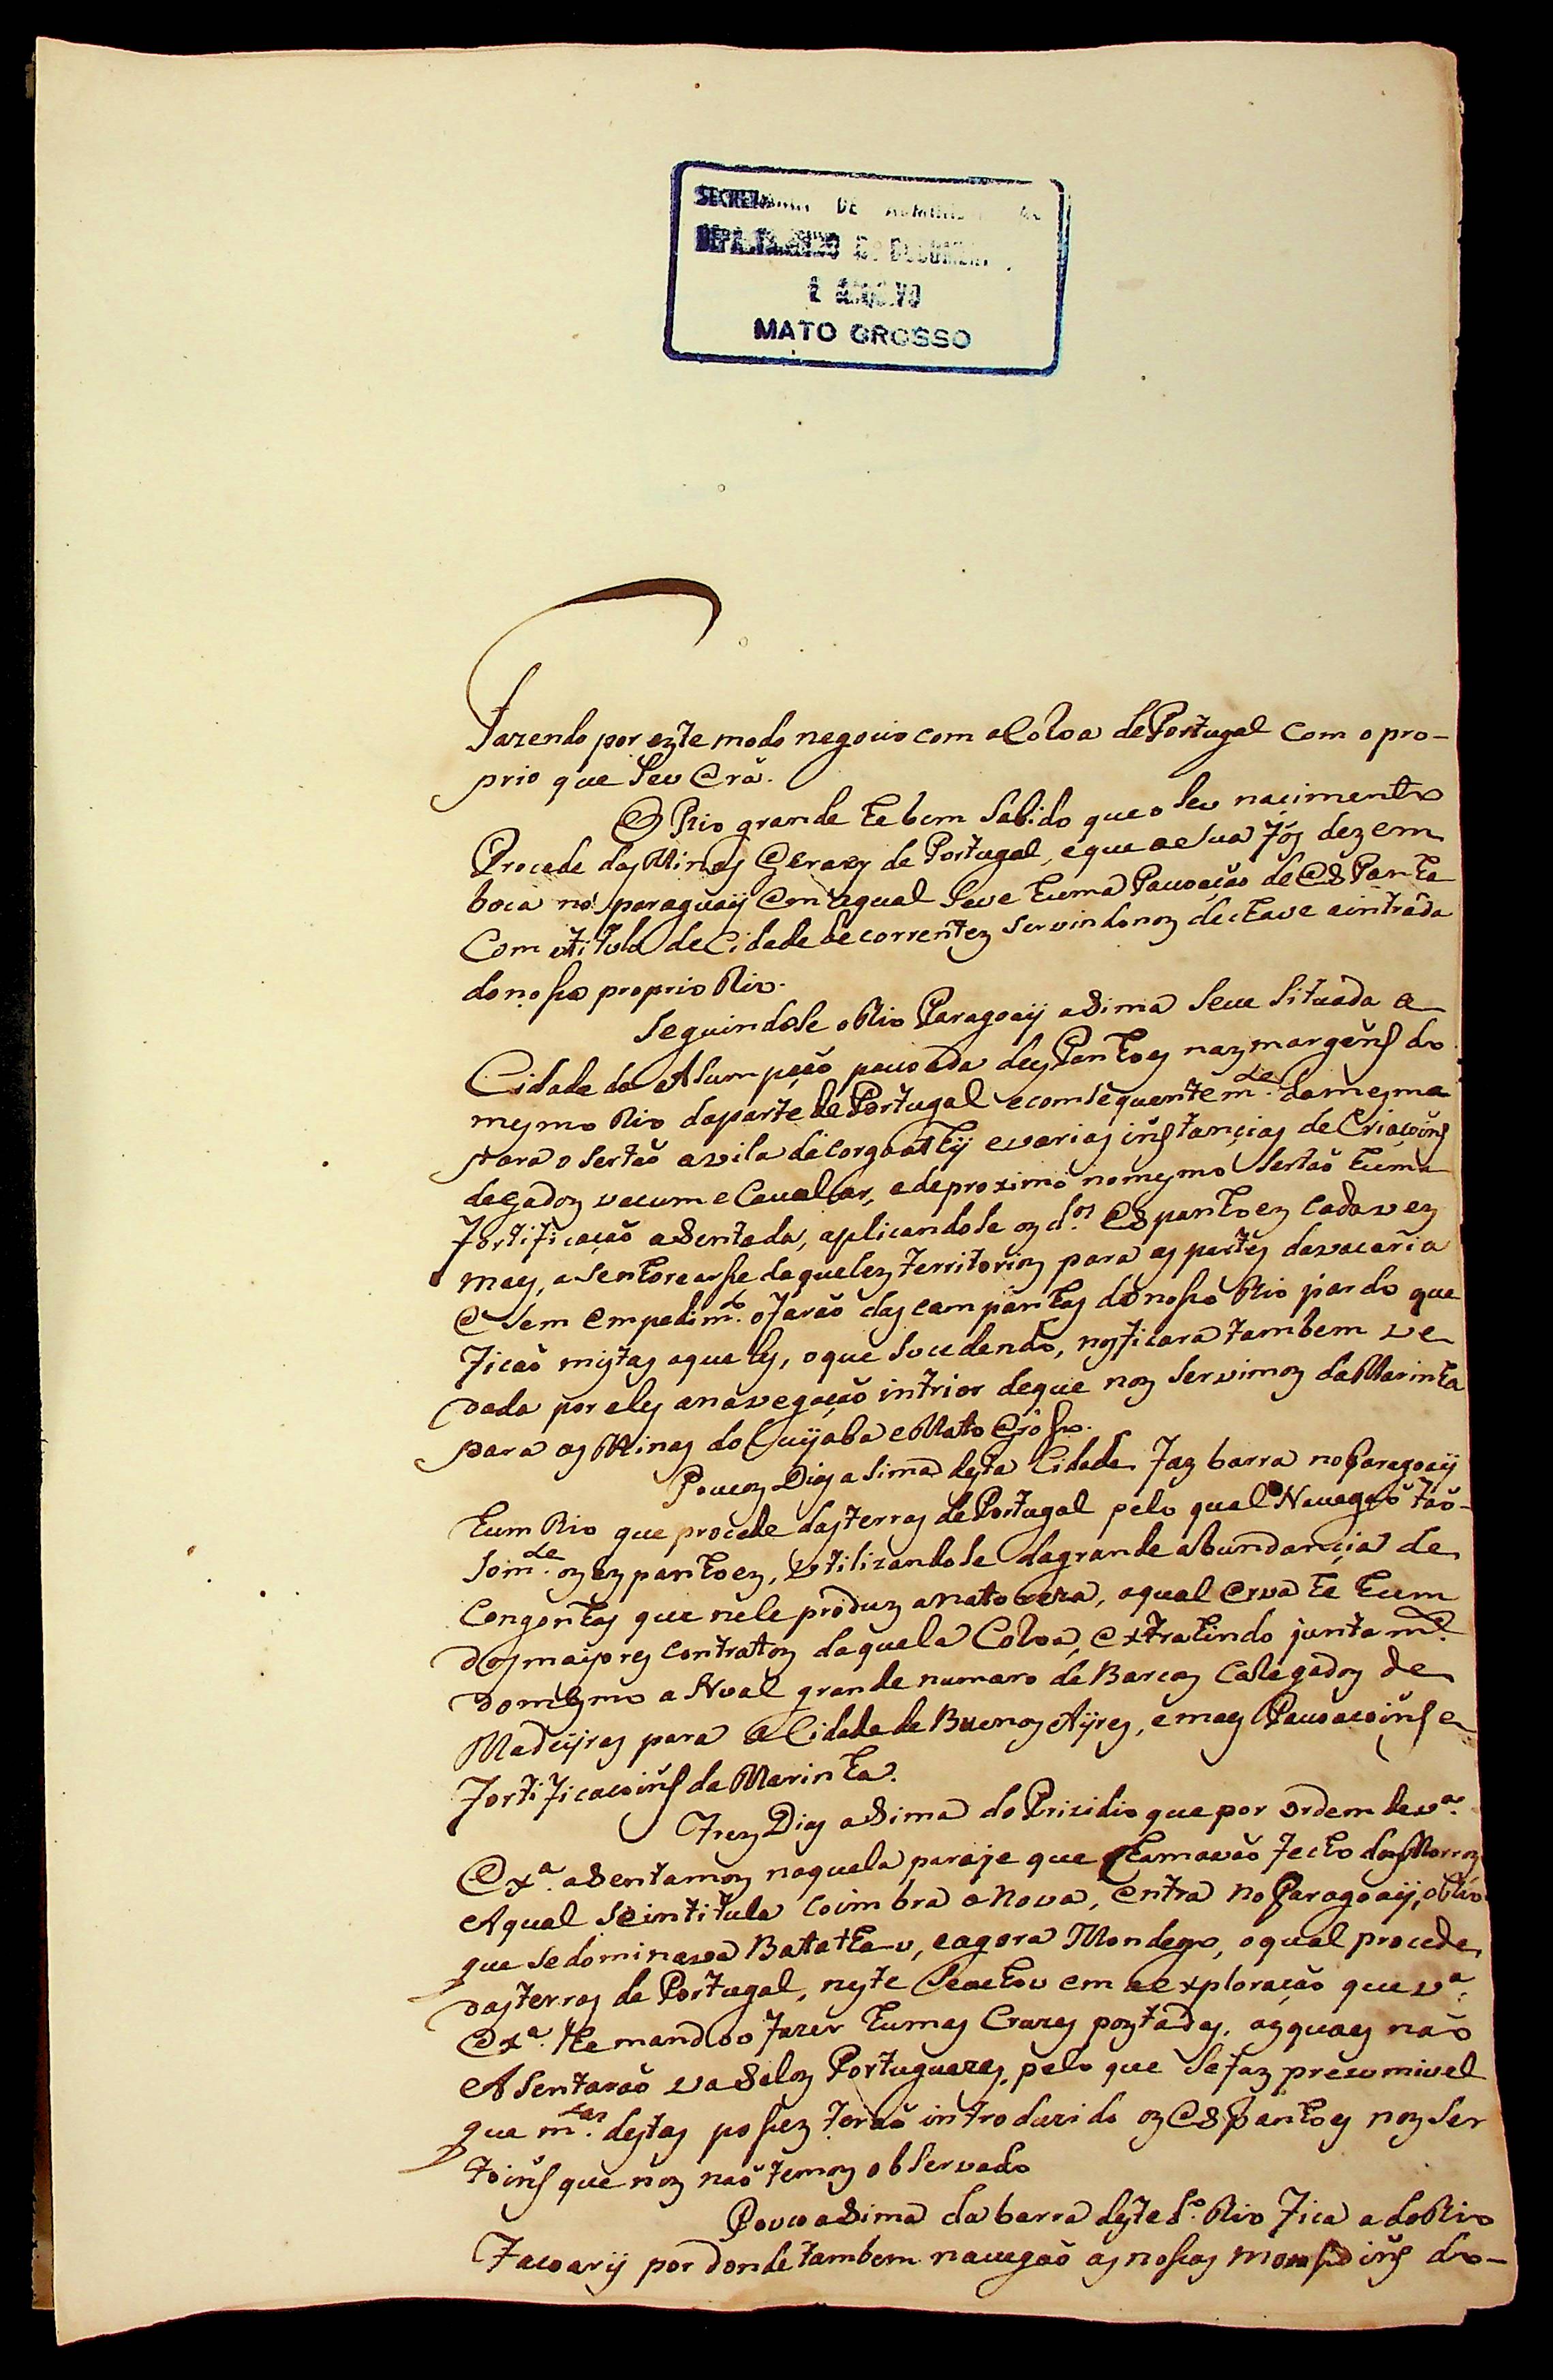 SECRETARIA DE ADMINIST
DEPARTAMENTO DE DOCUMEN
E ARQUIVO
MATO GROSSO
Fazendo por ezte modo negocio com a Coroa de Portugal com o pro-
prio que Seu Erâ.
O Rio grande he bem Sabido que o Seu naçimento
Procede das Minas Geraez de Portugal, e que a Sua fóz dezem
boca no paraguaÿ Em aqual Seve huma Pauoação de EsPanha
Com otitulo de Cidade de correntez Servindonoz de chave aintrada
do nosso proprio Rio.
Seguindose o Rio Paragoaÿ aSima Seue Situada a
Cidade da ASumpção pauoada de esPanhoes naz margens do
mesmo Rio daparte de Portugal e comSequentem.te da mesma
para o Sertão avila de Corgoathÿ e varias instançias de Criaçoins
de gadoz vacum e Caualar, e de proximo no mesmo Sertão huma
Fortificação aSentada, aplicandoSe oz d.os Espanhoez cada vez
mais, a Senhorearsse daquelez territorioz para as partes da vacaria
e Sem Empedim.to o farão das campanhas do nosso Rio pardo que
ficão mistas aquelas, o que Sucedendo, nos ficara tambem ve
dada por eles a navegação intrior de que noz Servimoz da Marinha
para as Minas do Cuÿaba e Mato Grósso.
Poucoz Dias aSima desta Cidade faz barra no Paragoaÿ
hum Rio que procede das terras de Portugal pelo qual Navegão tão-
Som.te oz ezpanhoez, utilizandoSe da grande abundançia de
Congonhas que nele produz a naturera, aqual Erva he hum
dos maijores contratoz daquela Coroa, extrahindo juntam.te
do mesmo a Nual grande numaro de Barcoz Caregadoz de
Madeÿras para a Cidade de Buenoz Aÿres, e mais Pauoacoins e
Fortificacoins da Marinha.
Trez Dias aSima do Prizidio que por ordem de v.a
Ex.a aSentamoz naquela paraje que chamavão fecho dos Morroz
Aqual Seintitula Coimbra a Nova, Entra no Paragoaÿ, o Rio
que Se dominava Batatheu, e agora Mondego, o qual procede
das terras de Portugal, neste Seachou em a exploração que v.a
Ex.a lhe mandoo fazer humas Cruzes postadas, as quaes não
ASentarão vaSaloz Portuguezes, pelo que Sefaz prezumivel
que m.tas destas possez terão introduzido oz EsPanhoes noz Ser
toins que noz não temoz obServado
Pouco aSima da barra deste d.o Rio fica a do Rio
Tacoarÿ por donde tambem nauegão as nossas monssoins do-